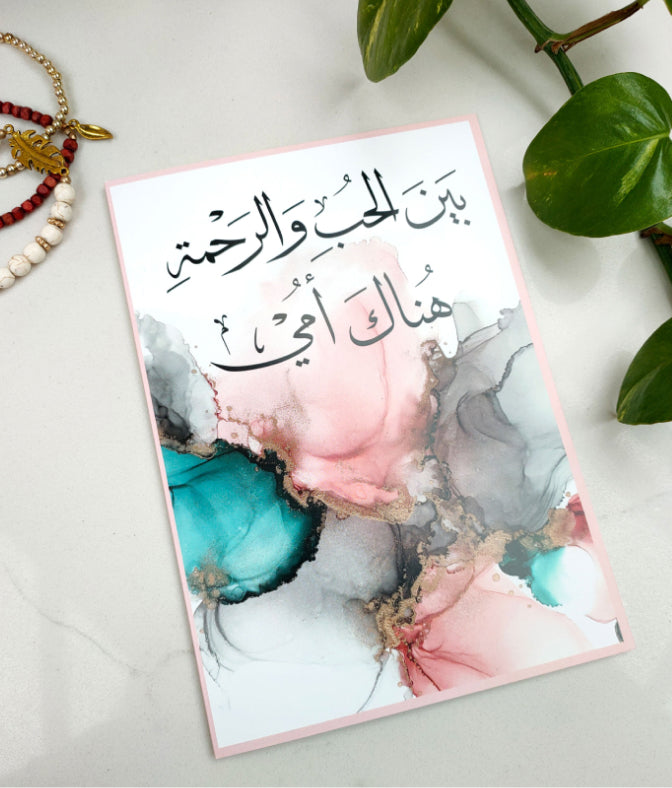 بَينَ الحُبِ وَالرَحْمةِ
هُناكَ أُميْ